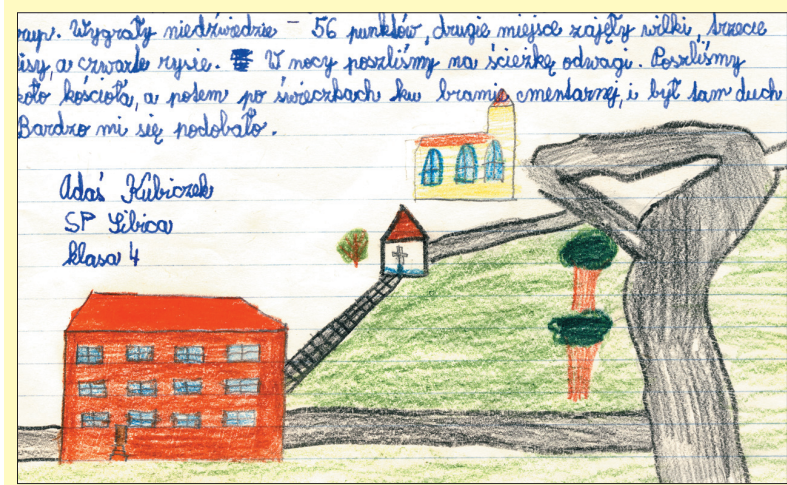 rup. Wygrały niedźwiedzie – 56 punktów, drugie miejsce zajęły wilki, trzecie
isy, a czwarte rysie. W nocy poszliśmy na ścieżkę odwagi. Poszliśmy
koło kościoła, a potem po świeczkach ku bramie cmentarnej, i był tam duch
Bardzo mi się podobało.
Adaś Kubiczek
SP Sibica
klasa 4